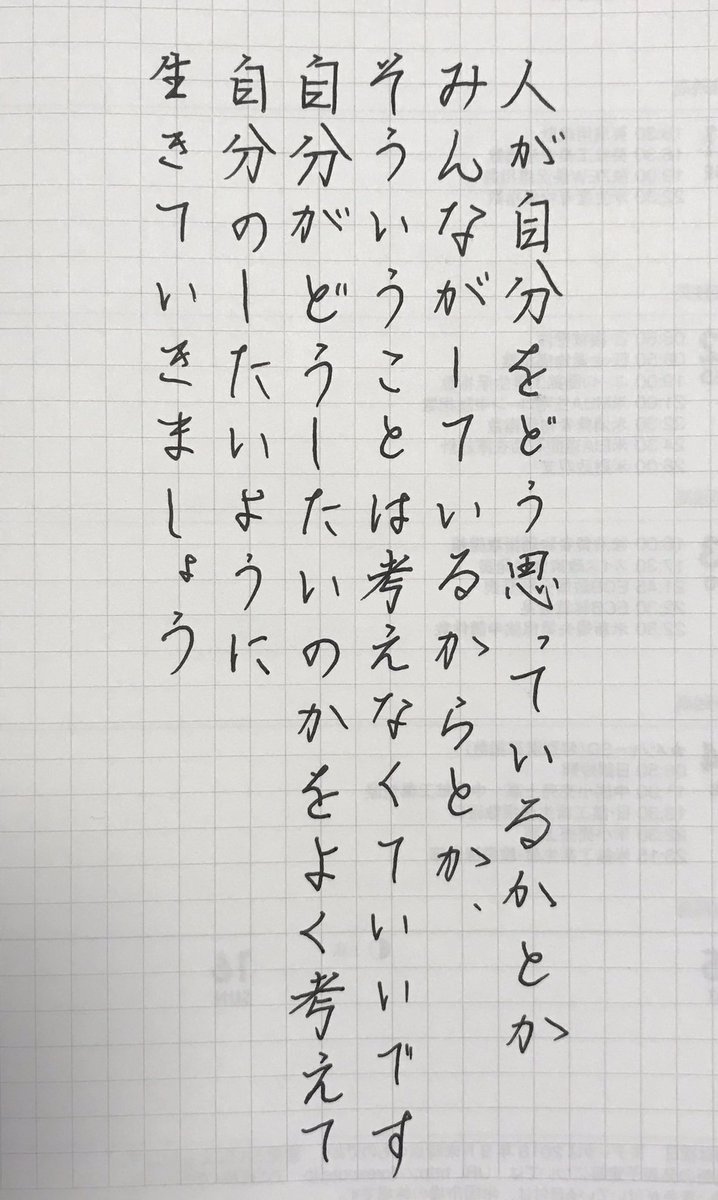 人が自分をどう思っているかとか
みんながしているからとか、
そういうことは考えなくていいです
自分がどうしたいのかをよく考えて
自分のしたいように
生きていきましょう